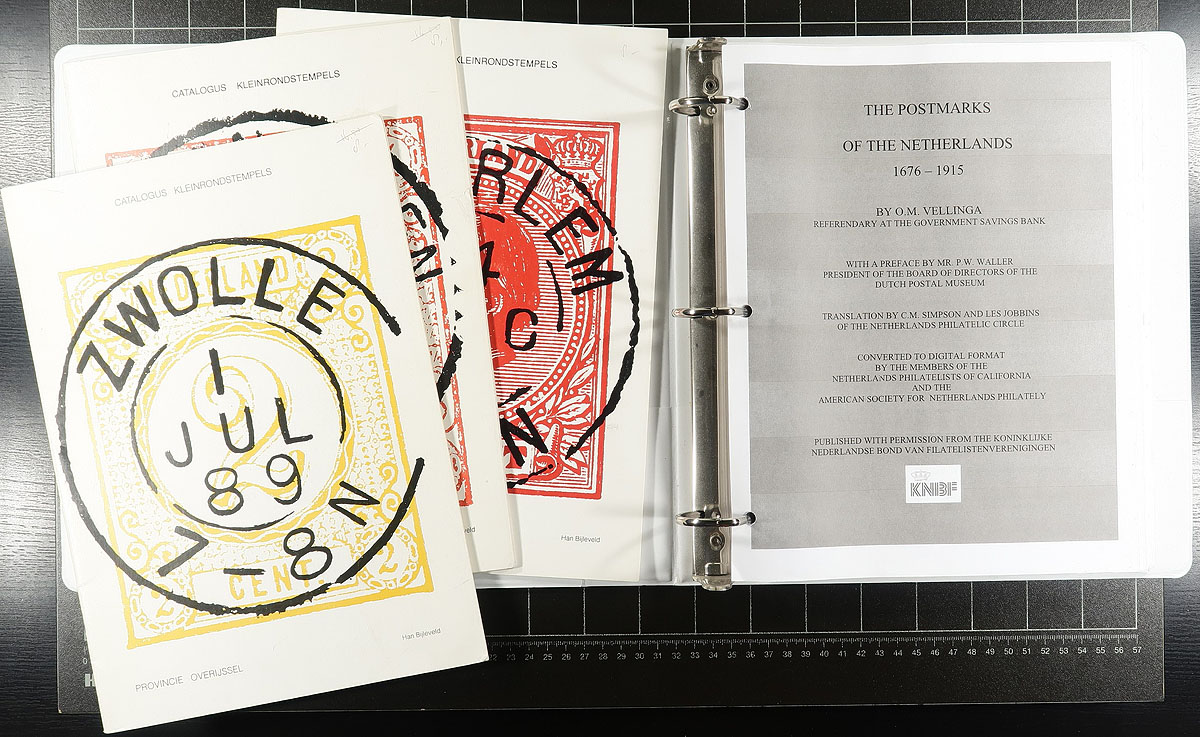 CATALOGUS KLEINRONDSTEMPELS
ZWOLLE
1
JUL
89
7-8 N
NEDERLAND
2
CENT
2
Han Bijleveld
PROVINCIE OVERIJSSEL
CATALOGUS KLEINRONDSTEMPELS
KLEINRONDSTEMPELS
RLEM
C
N
Han Bijleveld
THE POSTMARKS
OF THE NETHERLANDS
1676 – 1915
BY O.M. VELLINGA
REFERENDARY AT THE GOVERNMENT SAVINGS BANK
WITH A PREFACE BY MR. P.W. WALLER
PRESIDENT OF THE BOARD OF DIRECTORS OF THE
DUTCH POSTAL MUSEUM
TRANSLATION BY C.M. SIMPSON AND LES JOBBINS
OF THE NETHERLANDS PHILATELIC CIRCLE
CONVERTED TO DIGITAL FORMAT
BY THE MEMBERS OF THE
NETHERLANDS PHILATELISTS OF CALIFORNIA
AND THE
AMERICAN SOCIETY FOR NETHERLANDS PHILATELY
PUBLISHED WITH PERMISSION FROM THE KONINKLIJKE
NEDERLANDSE BOND VAN FILATELISTENVERENIGINGEN
KNBF
22 23 24 25 26 27 28 29 30 31 32 33 34 35 36 37 38 39 40 41 42 43 44 45 46 47 48 49 50 51 52 53 54 55 56 57